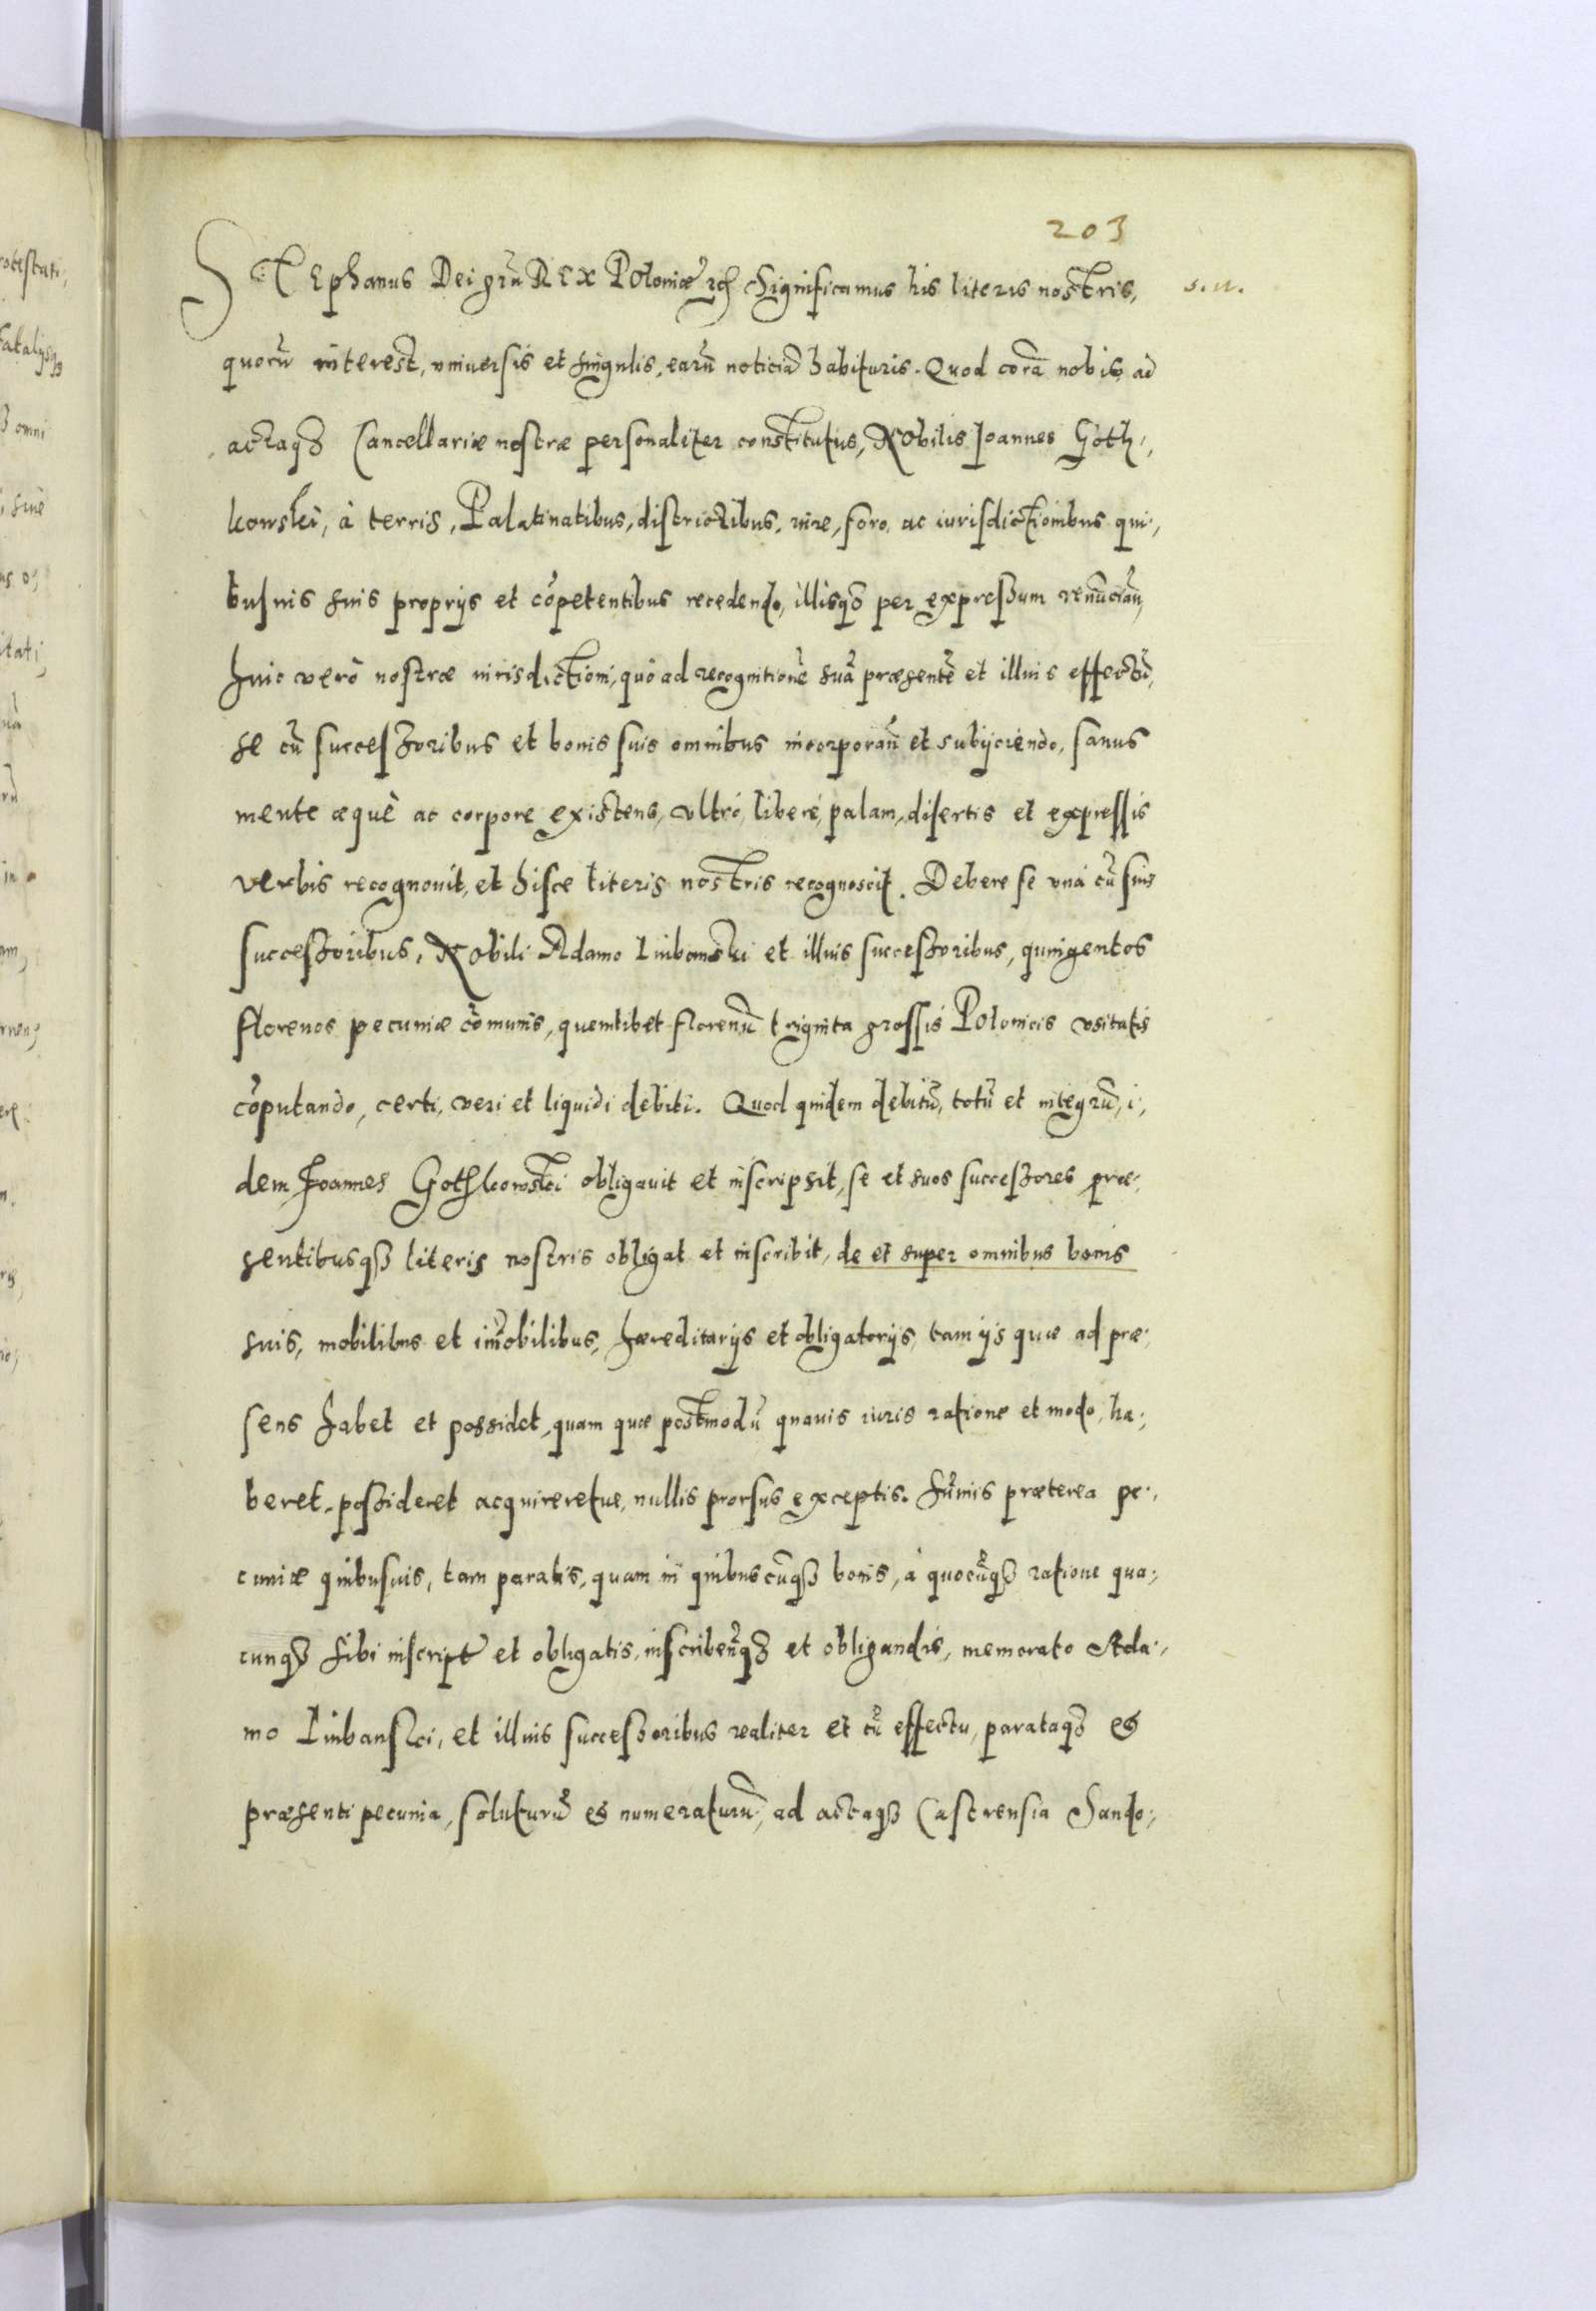 203
STEphanus Dei gra REX Poloniæ etc Significamus his literis nostris, s. n.
quorũ interest, vniuersis et singulis, earũ noticiã habituris. Quod corã nobis, ad
actaqȝ Cancellariæ nostræ personaliter constitutus, Nobilis Joannes Goth,
kowski, à terris, Palatinatibus, districtibus, iure, foro, ac iurisdictionibus qui,
busuis suis proprijs et cõpetentibus recedendo, illisqȝ per expressum renũcian,
huic verò nostræ iurisdictioni, quò ad recognitionẽ suã præsentẽ et illius effectũ,
se cũ successoribus et bonis suis omnibus incorporañ et subijciendo, sanus
mente æquè ac corpore existens, vltrò, liberè, palam, disertis et expressis
verbis recognouit, et hisce literis nostris recognoscit. Debere se vnà cũ suis
successoribus, Nobili Adamo Linbanski et illius successoribus, quingentos
florenos pecuniæ cõmunis, quemlibet florenũ triginta grossis Polonicis vsitatis
cõputando, certi, veri et liquidi debiti. Quod quidem debitũ, totũ et integrũ, i,
dem Joannes Gothkowski obligauit et inscripsit, se et suos successores, præ,
sentibusqȝ literis nostris obligat et inscribit, de et super omnibus bonis
suis, mobilibus et im̃obilibus, hæreditarijs et obligatorijs, tam ijs quæ ad præ,
sens habet et possidet, quam quæ postmodũ quauis iuris ratione et modo, ha,
beret, possideret acquireretue, nullis prorsus exceptis. Sum̃is præterea pe,
cuniæ quibusuis, tam paratis, quam in quibuscũqȝ bonis, à quocũqȝ ratione qua,
cunqȝ sibi inscript et obligatis, inscribeñqȝ et obligandis, memorato Ada,
mo Linbanski, et illius successoribus realiter et cũ effectu, parataqȝ et
præsenti pecunia, soluturũ et numeraturũ, ad actaqȝ Castrensia Sando,